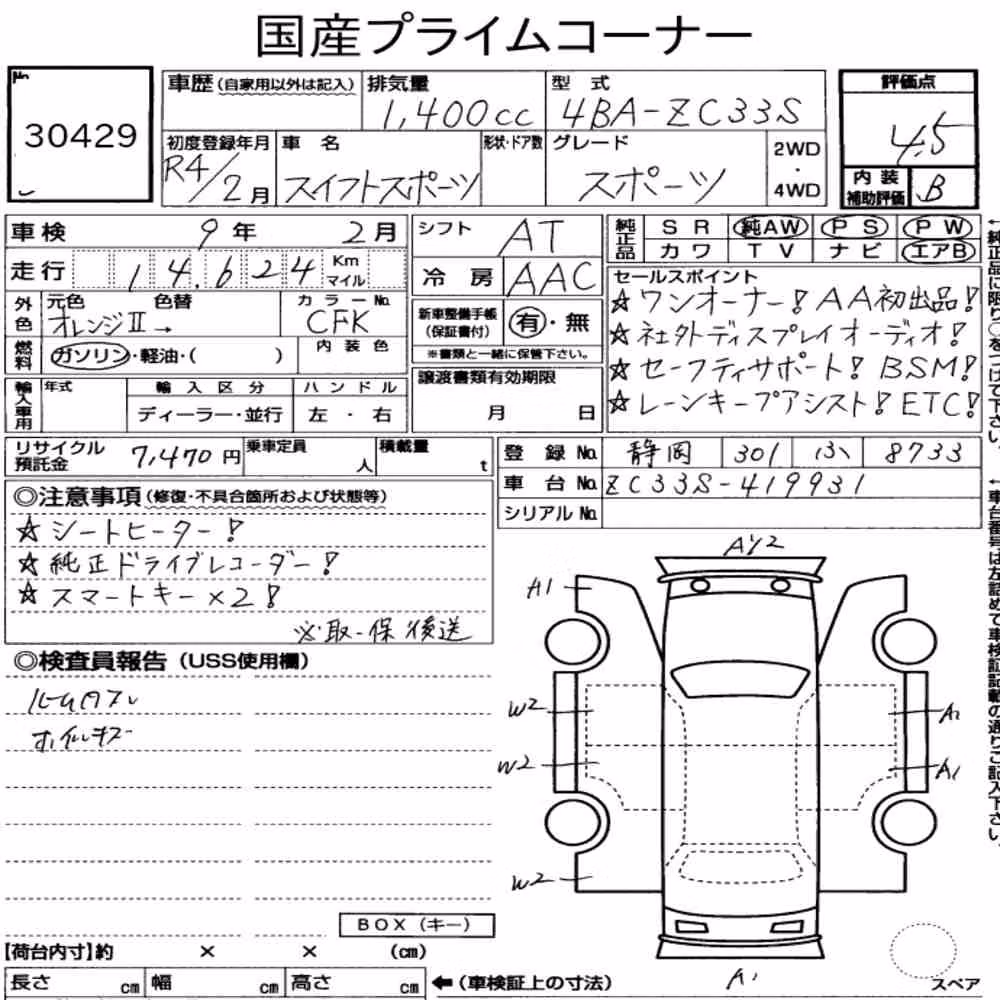 国産プライムコーナー
No.
30429
車歴(自家用以外は記入) 排気量 1,400cc 型式 4BA-ZC33S
初度登録年月 R4/2月 車名 スイフトスポーツ 形状・ドア数 グレード スポーツ 2WD・4WD
評価点 4.5
内装補助評価 B
車検 9年 2月
走行 14,624 Km マイル
外色 元色 オレンジⅡ→ 色替 カラーNo. CFK
燃料 ガソリン・軽油・( ) 内装色
輸入車用 年式 輸入区分 ディーラー・並行 ハンドル 左・右
シフト AT
冷房 AAC
新車整備手帳(保証書付) 有・無
※書類と一緒に保管下さい。
譲渡書類有効期限
月 日
純正品 SR 純AW PS PW
カワ TV ナビ エアB
セールスポイント
☆ワンオーナー!AA初出品!
☆社外ディスプレイオーディオ!
☆セーフティサポート!BSM!
☆レーンキープアシスト!ETC!
←純正品に限り○をつけて下さい。
リサイクル預託金 7,470円 乗車定員 人 積載量 t
登録No. 静岡 301 ふ 8733
車台No. ZC33S-419931
シリアルNo.
←車台番号は左詰めて車検証記載の通りご記入下さい。
◎注意事項(修復・不具合箇所および状態等)
☆シートヒーター!
☆純正ドライブレコーダー!
☆スマートキー×2!
※取-保後送
◎検査員報告(USS使用欄)
ホイルキズ
AY2
A1
W2
A1
W2
A1
W2
A1
BOX(キー)
【荷台内寸】約 × × (cm)
長さ cm 幅 cm 高さ cm ←(車検証上の寸法)
スペア